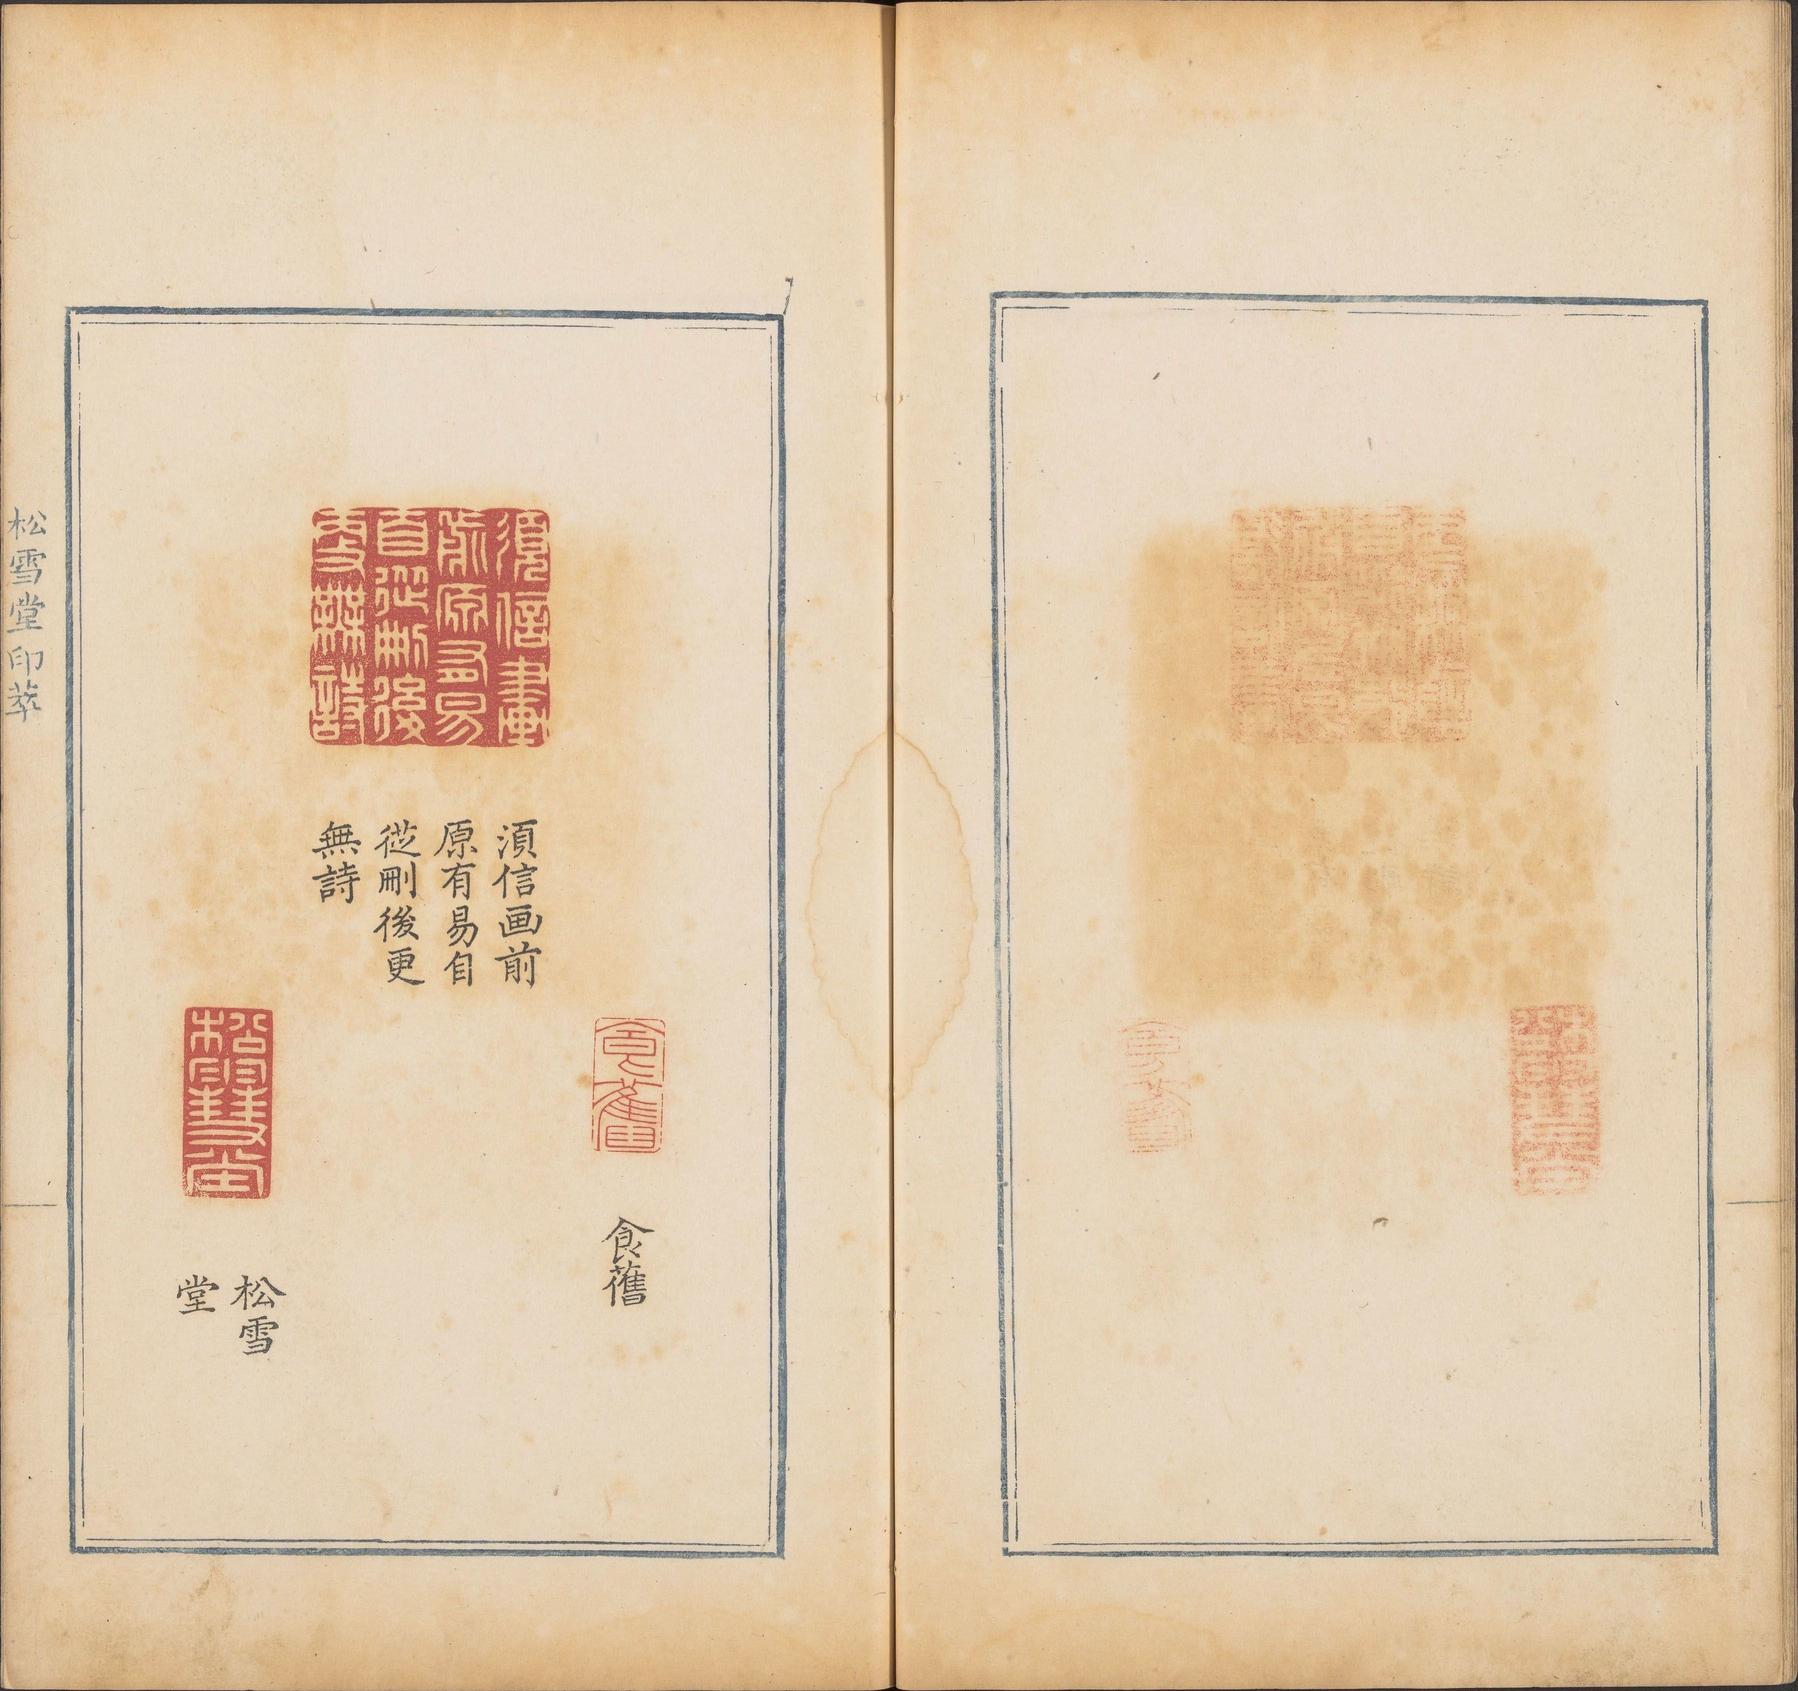 須信畫
前原有易
自從刪後
更無詩
湏信画前
原有易自
從刪後更
無詩
食舊
食舊
松雪堂
松雪
堂
松雪堂印萃